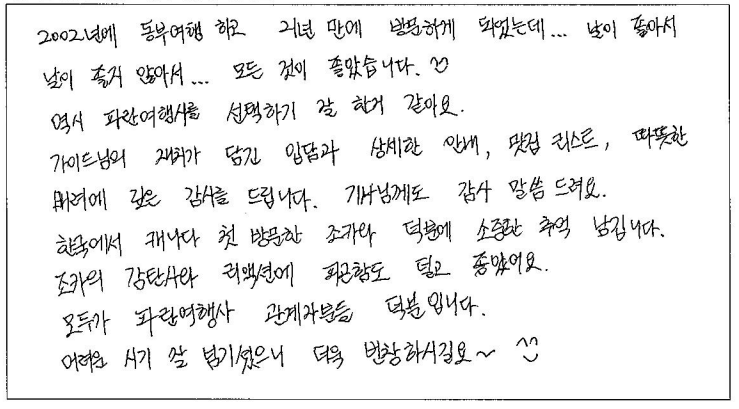 2002년에 동부여행 하고 21년 만에 방문하게 되었는데... 날이 좋아서
날이 좋지 않아서... 모든 것이 좋았습니다. ☺
역시 파란여행사를 선택하기 잘 한거 같아요.
가이드님의 재치가 담긴 입담과 상세한 안내, 맛집 리스트, 따뜻한
배려에 깊은 감사를 드립니다. 기사님께도 감사 말씀 드려요.
한국에서 캐나다 첫 방문한 조카와 덕분에 소중한 추억 남깁니다.
조카의 감탄사와 리액션에 피곤함도 덜고 좋았어요.
모두가 파란여행사 관계자분들 덕분입니다.
어려운 시기 잘 넘기셨으니 더욱 번창하시길요~ ^^